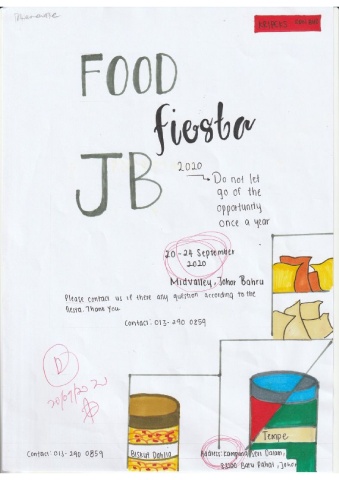 FOOD
fiesta
JB
2020
Do not let
go of the
opportunity
once a year
20-24 September
2020
Midvalley, Johor Bahru
Please contact us if there any question according to the
fiesta. Thank you.
Contact: 013-290 0859
20/09/2020
Biskut Dahlia
Tempe
Contact: 013-290 0859
Address: Kampung
Batu Pahat, Johor